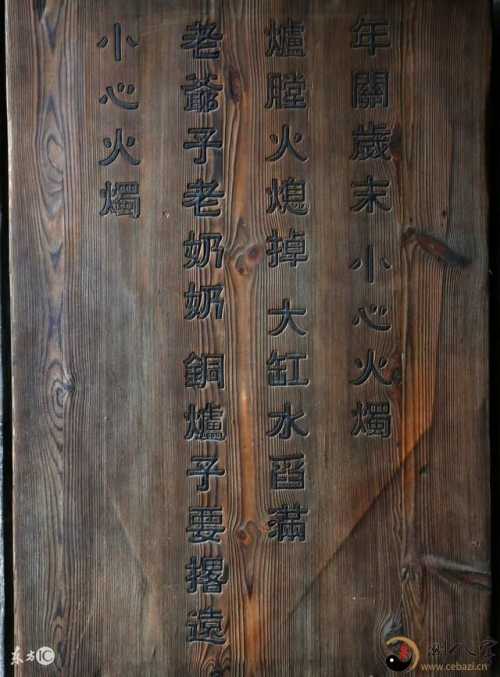 年關歲末 小心火燭
爐膛火熄掉 大缸水舀滿
老爺子老奶奶 銅爐子要撂遠
小心火燭
东方IC
www.cebazi.cn